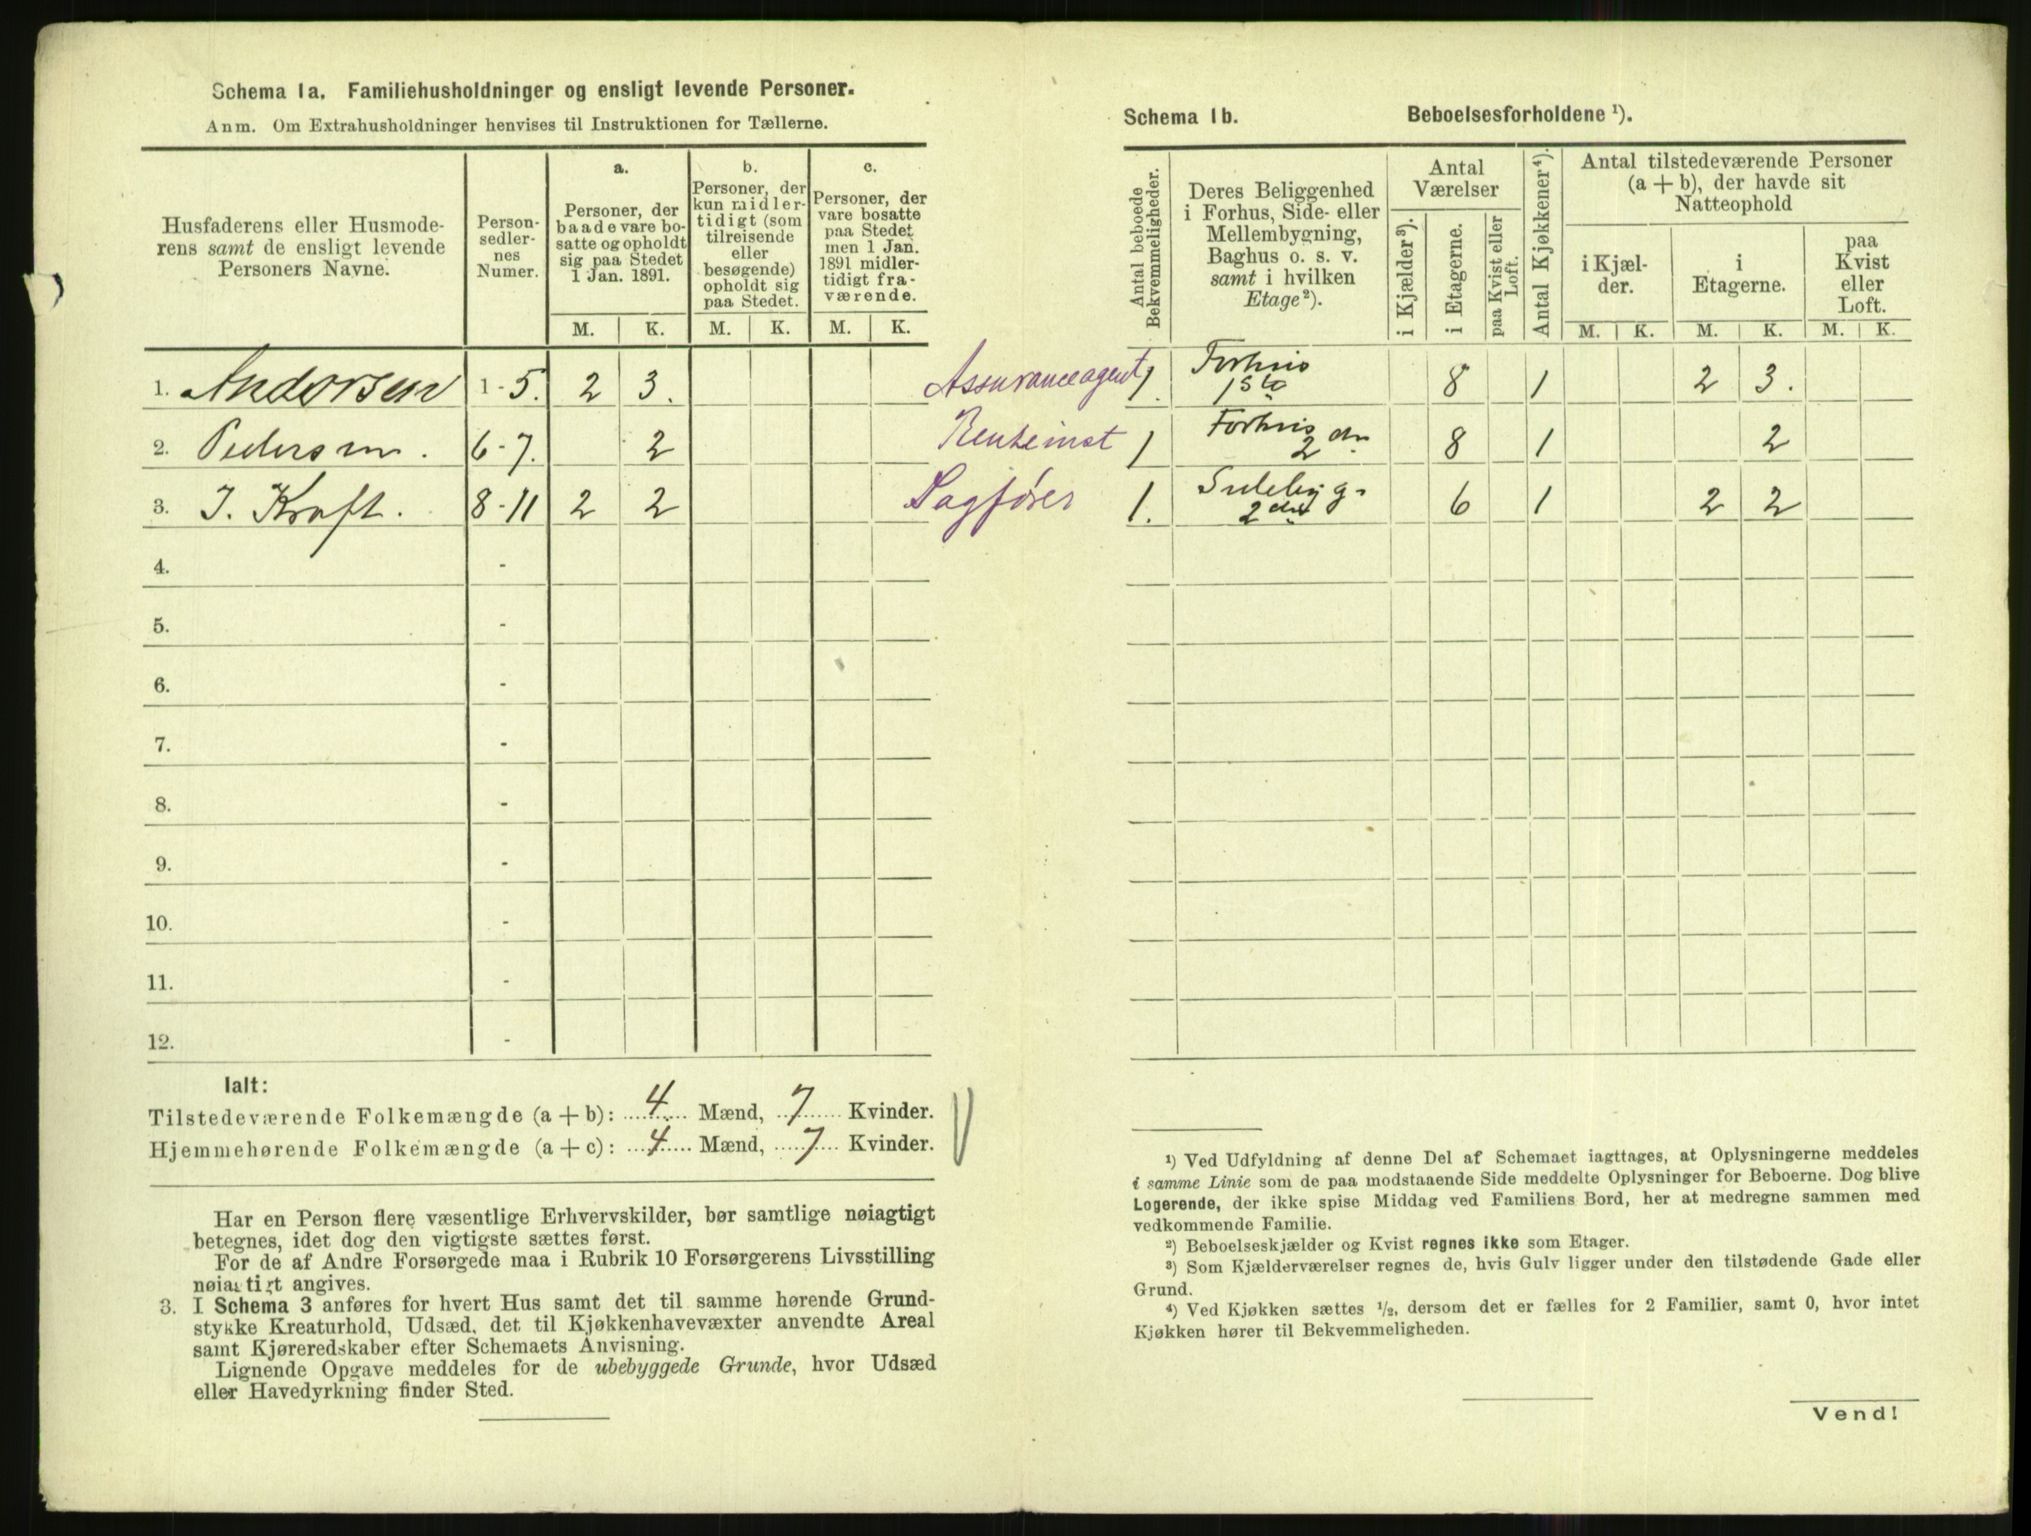 Schema 1a. Familiehusholdninger og ensligt levende Personer.
Anm. Om Extrahusholdninger henvises til Instruktionen for Tællerne.
Husfaderens eller Husmode-
rens samt de ensligt levende
Personers Navne.
Person-
sedler-
nes
Numer.
a.
Personer, der
baade vare bo-
satte og opholdt
sig paa Stedet
1 Jan. 1891.
b.
Personer, der
kun midler-
tidigt (som
tilreisende
eller
besøgende)
opholdt sig
paa Stedet.
c.
Personer, der
vare bosatte
paa Stedet
men 1 Jan.
1891 midler-
tidigt fra-
værende.
M. K. M. K. M. K.
1. Andersen 1-5. 2 3.
2. Pedersen. 6-7. 2
3. J. Kraft. 8-11 2 2
4. -
5. -
6. -
7. -
8. -
9. -
10. -
11. -
12. -
Ialt:
Tilstedeværende Folkemængde (a + b): 4 Mænd, 7 Kvinder.
Hjemmehørende Folkemængde (a + c): 4 Mænd, 7 Kvinder.
Har en Person flere væsentlige Erhvervskilder, bør samtlige nøiagtigt
betegnes, idet dog den vigtigste sættes først.
For de af Andre Forsørgede maa i Rubrik 10 Forsørgerens Livsstilling
nøiagtigt angives.
3. I Schema 3 anføres for hvert Hus samt det til samme hørende Grund-
stykke Kreaturhold, Udsæd, det til Kjøkkenhavevæxter anvendte Areal
samt Kjøreredskaber efter Schemaets Anvisning.
Lignende Opgave meddeles for de ubebyggede Grunde, hvor Udsæd
eller Havedyrkning finder Sted.
Schema 1b. Beboelsesforholdene ¹).
Antal beboede
Bekvemmeligheder.
Deres Beliggenhed
i Forhus, Side- eller
Mellembygning,
Baghus o. s. v.
samt i hvilken
Etage ²).
Antal
Værelser
i Kjælder ³).
i Etagerne.
paa Kvist eller
Loft.
Antal Kjøkkener ⁴).
Antal tilstedeværende Personer
(a + b), der havde sit
Natteophold
i Kjæl-
der.
i
Etagerne.
paa
Kvist
eller
Loft.
M. K. M. K. M. K.
Assuranceagent 1. Forhus
1ste 8 1 2 3.
1 Forhus
2 den 8 1 2
Sagfører 1. Sidebyg.
2den 6 1 2 2
¹) Ved Udfyldning af denne Del af Schemaet iagttages, at Oplysningerne meddeles
i samme Linie som de paa modstaaende Side meddelte Oplysninger for Beboerne. Dog blive
Logerende, der ikke spise Middag ved Familiens Bord, her at medregne sammen med
vedkommende Familie.
²) Beboelseskjælder og Kvist regnes ikke som Etager.
³) Som Kjælderværelser regnes de, hvis Gulv ligger under den tilstødende Gade eller
Grund.
⁴) Ved Kjøkken sættes ½, dersom det er fælles for 2 Familier, samt 0, hvor intet
Kjøkken hører til Bekvemmeligheden.
Vend!